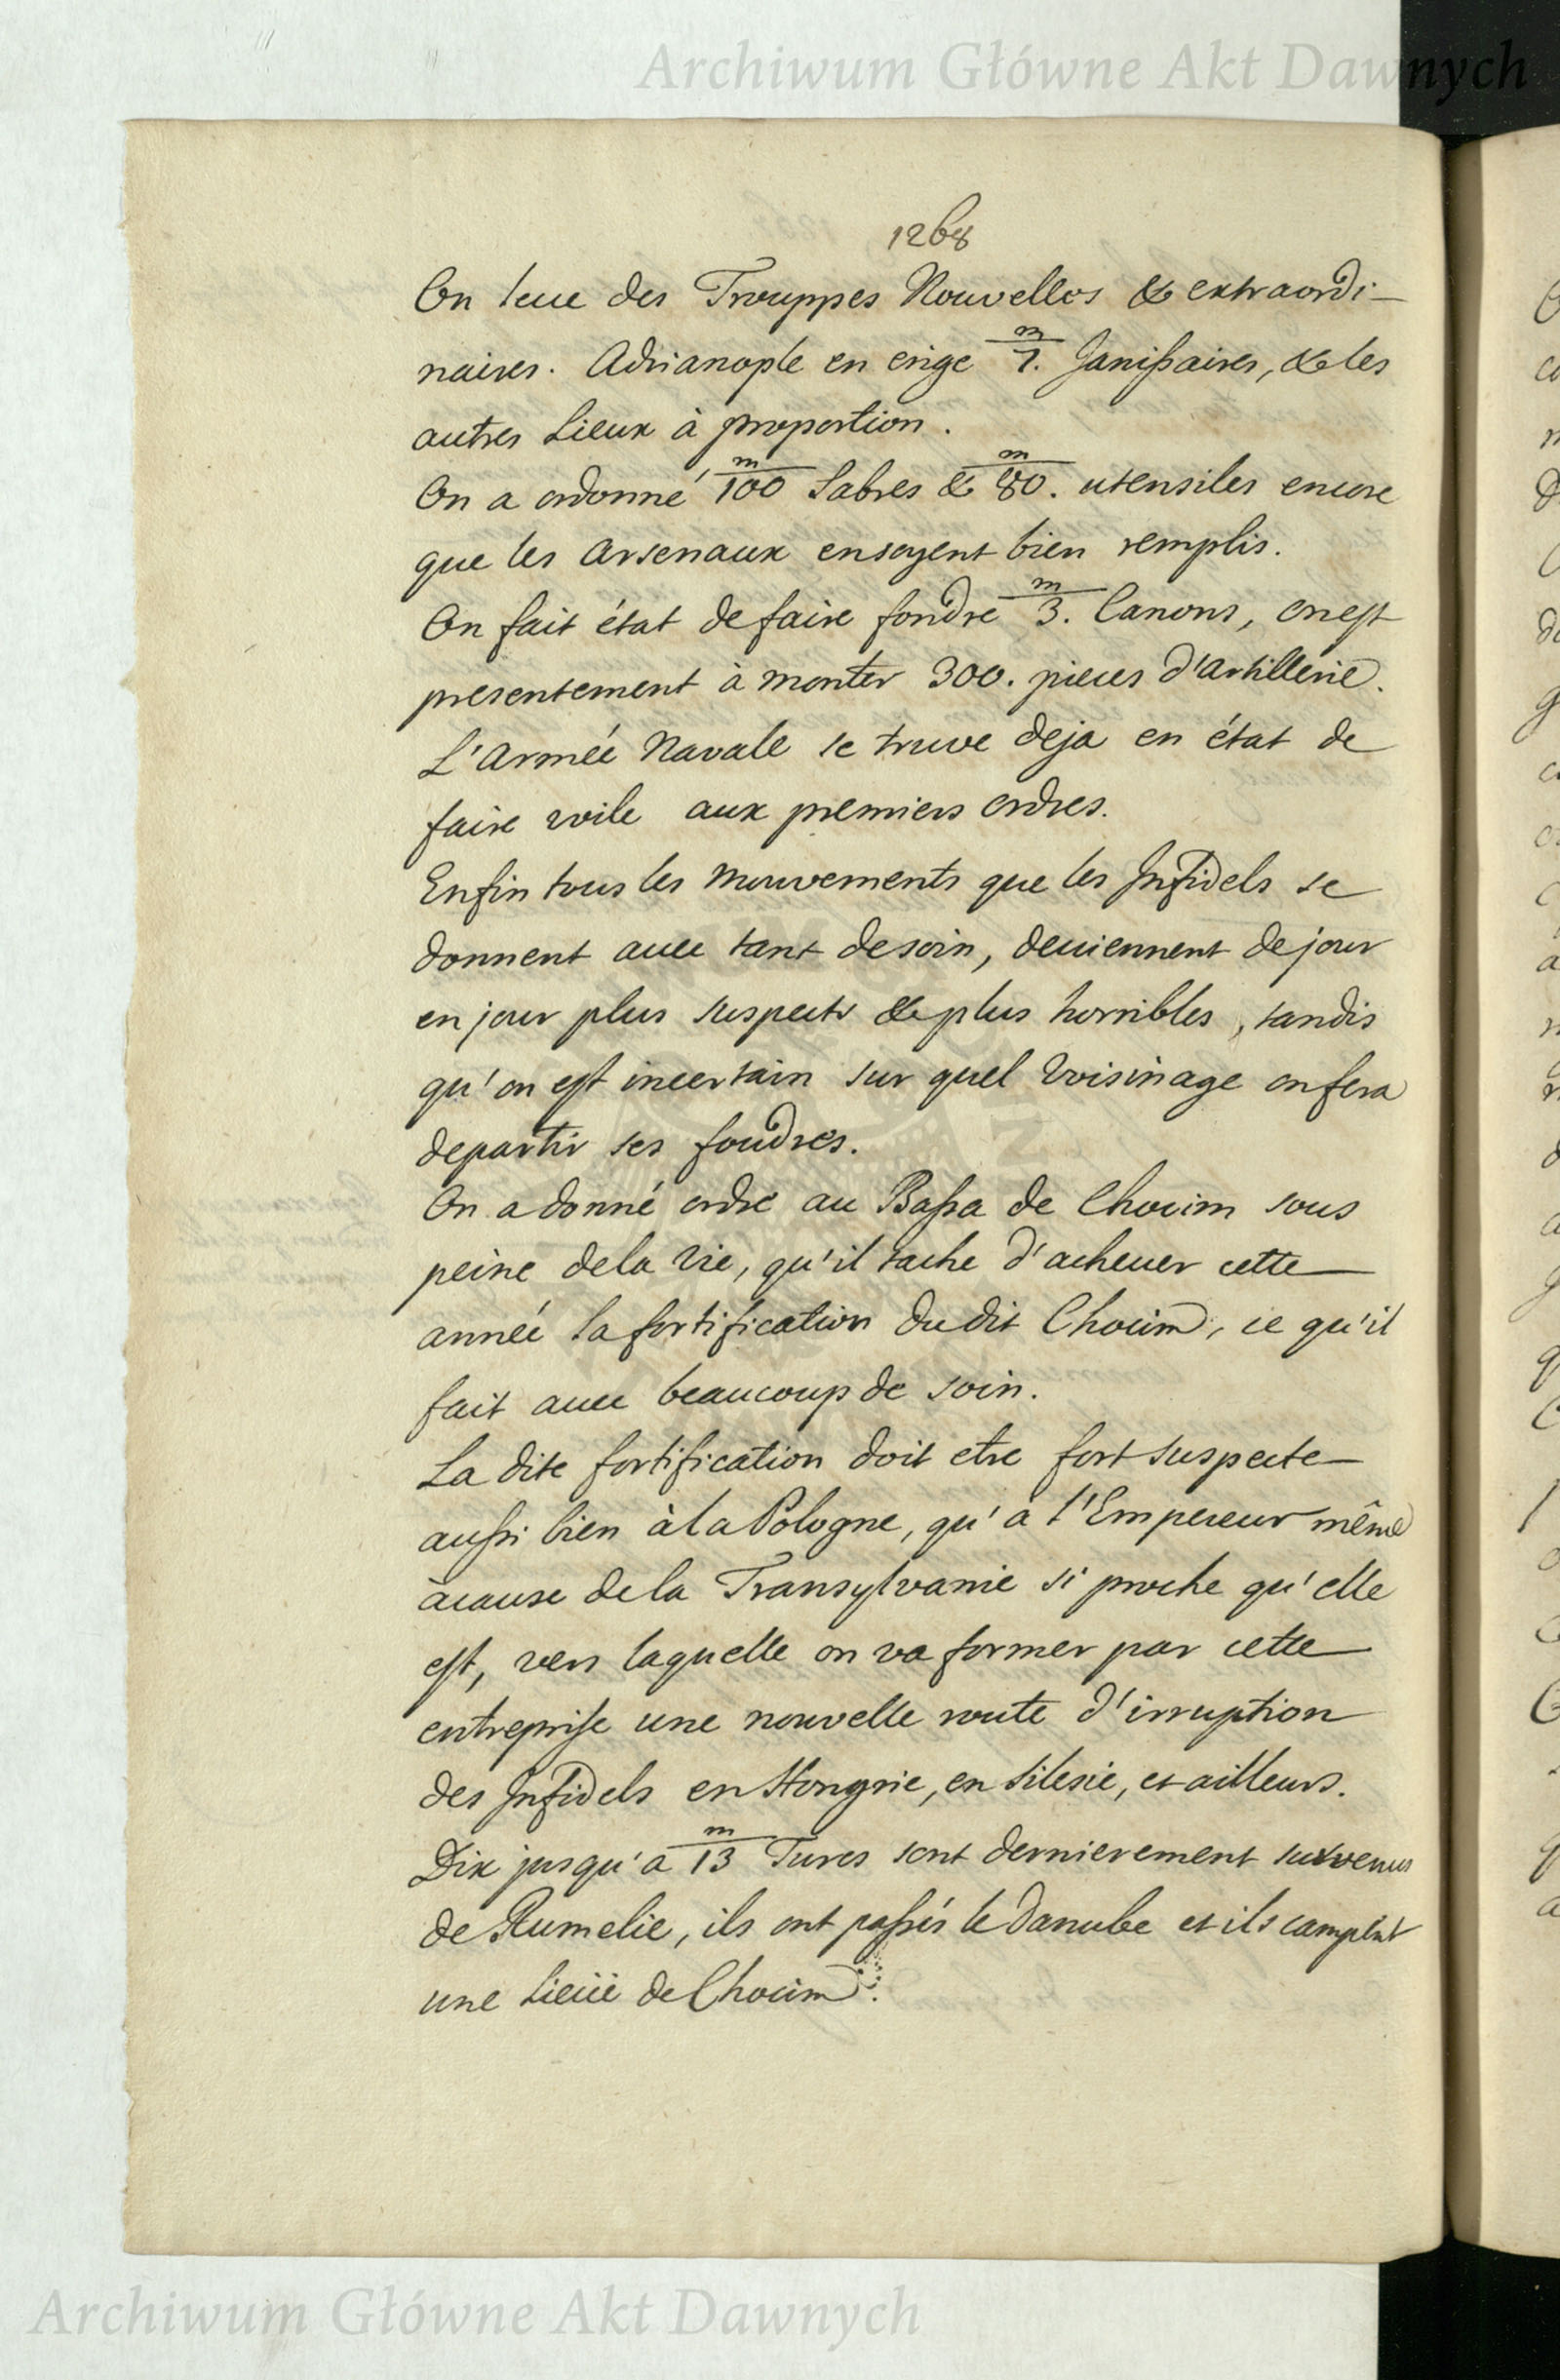 Archiwum Główne Akt Dawnych
1268
On leue des Trouppes Nouvelles & extraordi-
naires. Adrianople en erige m/7. Janissaires, & les
autres Lieux à proportion.
On a ordonné m/100 Sabres & m/80. utensiles encore
que les Arsenaux en soyent bien remplis.
On fait état de faire fondre m/3. Canons, on est
presentement à monter 300. pieces d'Artillerie.
L'Armée Navale se truve deja en état de
faire voile aux premiers ordres.
Enfin tous les mouvements que les Infidels se
donnent avec tant de soin, deviennent de jour
en jour plus suspects & plus horribles, tandis
qu'on est incertain sur quel Voisinage on fera
departir ses foudres.
On a donné ordre au Bassa de Chocim sous
peine de la Vie, qu'il tache d'achever cette
année la fortification du dit Chocim, ce qu'il
fait avec beaucoup de soin.
La dite fortification doit etre fort suspecte
aussi bien à la Pologne, qu'a l'Empereur même
àcause de la Transylvanie si proche qu'elle
est, vers laquelle on va former par cette
entreprise une nouvelle route d'irruption
des Infidels en Hongrie, en Silesie, et ailleurs.
Dix jusqu'a m/13 Turcs sont dernierement survenus
de Rumelie, ils ont passés le Danube et ils campent
une Lieüe de Chocim.
Archiwum Główne Akt Dawnych